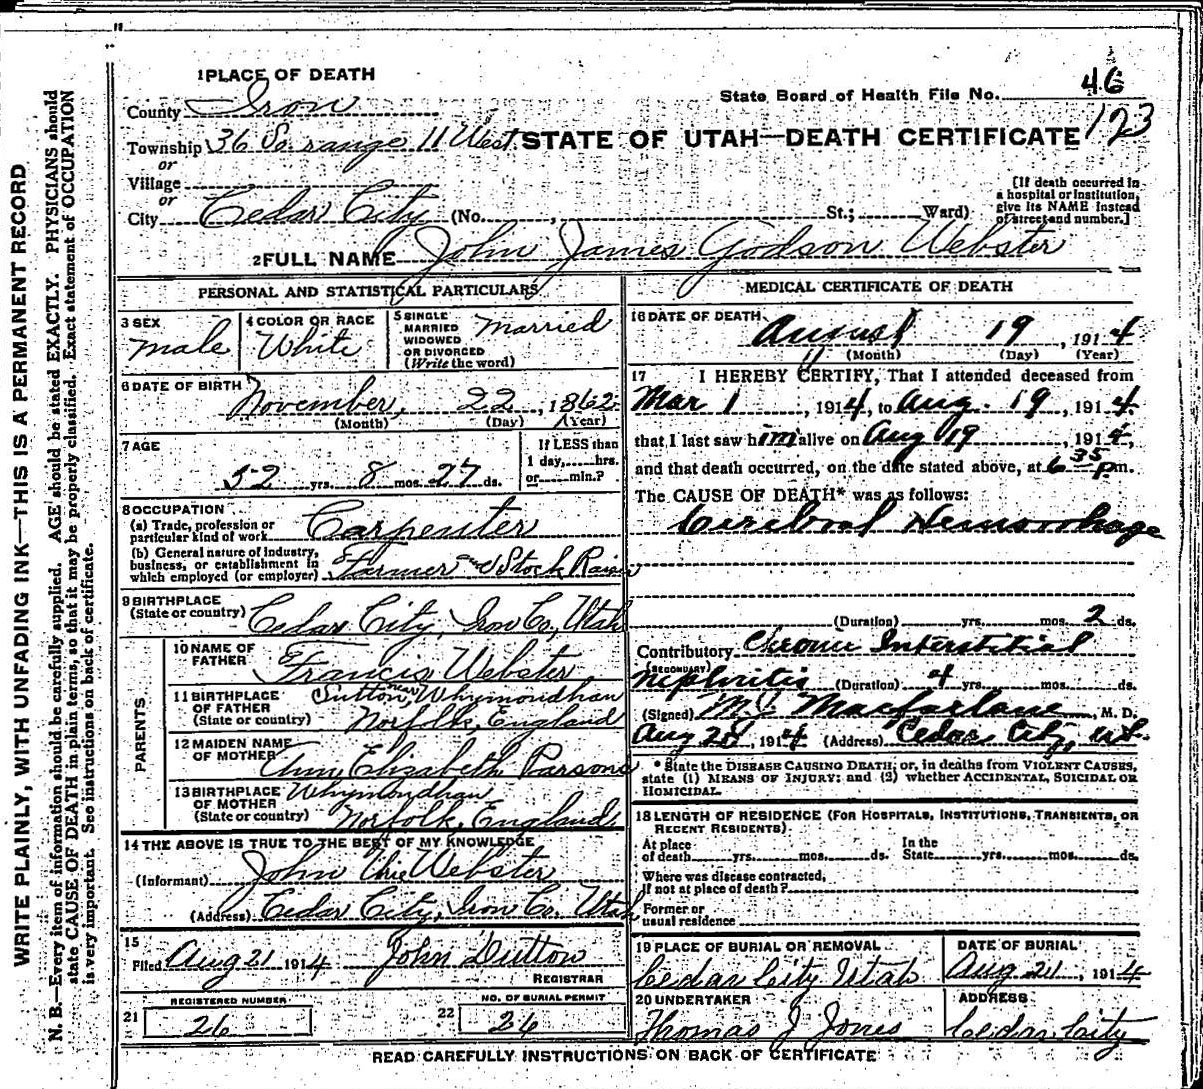 WRITE PLAINLY, WITH UNFADING INK—THIS IS A PERMANENT RECORD
N. B.—Every item of information should be carefully supplied. AGE should be stated EXACTLY. PHYSICIANS should
state CAUSE OF DEATH in plain terms, so that it may be properly classified. Exact statement of OCCUPATION
is very important. See instructions on back of certificate.
1 PLACE OF DEATH
County Iron
State Board of Health File No. 46
123
Township 36 So. range 11 West
STATE OF UTAH—DEATH CERTIFICATE
or
Village
or
City Cedar City (No. , St.; Ward)
[If death occurred in
a hospital or institution,
give its NAME instead
of street and number.]
2 FULL NAME John James Godson Webster
PERSONAL AND STATISTICAL PARTICULARS
3 SEX
male
4 COLOR OR RACE
White
5 SINGLE
MARRIED
WIDOWED
OR DIVORCED
(Write the word)
Married
6 DATE OF BIRTH
November, 22, 1862
(Month) (Day) (Year)
7 AGE
52 yrs. 8 mos. 27 ds.
If LESS than
1 day, hrs.
or min.?
8 OCCUPATION
(a) Trade, profession or
particular kind of work Carpenter
(b) General nature of industry,
business, or establishment in
which employed (or employer) Farmer and Stock Raiser
9 BIRTHPLACE
(State or country) Cedar City, Iron Co., Utah
PARENTS
10 NAME OF
FATHER Francis Webster
11 BIRTHPLACE
OF FATHER
(State or country)
Sutton, near Whymondhan
Norfolk, England
12 MAIDEN NAME
OF MOTHER Ann Elizabeth Parsons
13 BIRTHPLACE
OF MOTHER
(State or country)
Whymondhan
Norfolk, England
14 THE ABOVE IS TRUE TO THE BEST OF MY KNOWLEDGE
(Informant) John Webster
(Address) Cedar City, Iron Co. Utah
15
Filed Aug 21 1914 John Dutton
REGISTRAR
REGISTERED NUMBER
21 26
NO. OF BURIAL PERMIT
22 26
MEDICAL CERTIFICATE OF DEATH
16 DATE OF DEATH
August 19, 1914
(Month) (Day) (Year)
17 I HEREBY CERTIFY, That I attended deceased from
Mar 1, 1914, to Aug. 19, 1914.
that I last saw him alive on Aug 19, 1914,
and that death occurred, on the date stated above, at 6 35 p m.
The CAUSE OF DEATH* was as follows:
Cerebral Hemorrhage
(Duration) yrs. mos. 2 ds.
Contributory Chronic Interstitial
(SECONDARY)
Nephritis (Duration) 4 yrs. mos. ds.
(Signed) M. J. Macfarlane, M. D.
Aug 20, 1914 (Address) Cedar City, Ut.
* State the DISEASE CAUSING DEATH; or, in deaths from VIOLENT CAUSES,
state (1) MEANS OF INJURY; and (2) whether ACCIDENTAL, SUICIDAL OR
HOMICIDAL.
18 LENGTH OF RESIDENCE (FOR HOSPITALS, INSTITUTIONS, TRANSIENTS, OR
RECENT RESIDENTS)
At place
of death yrs. mos. ds.
In the
State yrs. mos. ds.
Where was disease contracted,
if not at place of death?
Former or
usual residence
19 PLACE OF BURIAL OR REMOVAL
Cedar City Utah
DATE OF BURIAL
Aug 21, 1914
20 UNDERTAKER
Thomas J Jones
ADDRESS
Cedar City
READ CAREFULLY INSTRUCTIONS ON BACK OF CERTIFICATE